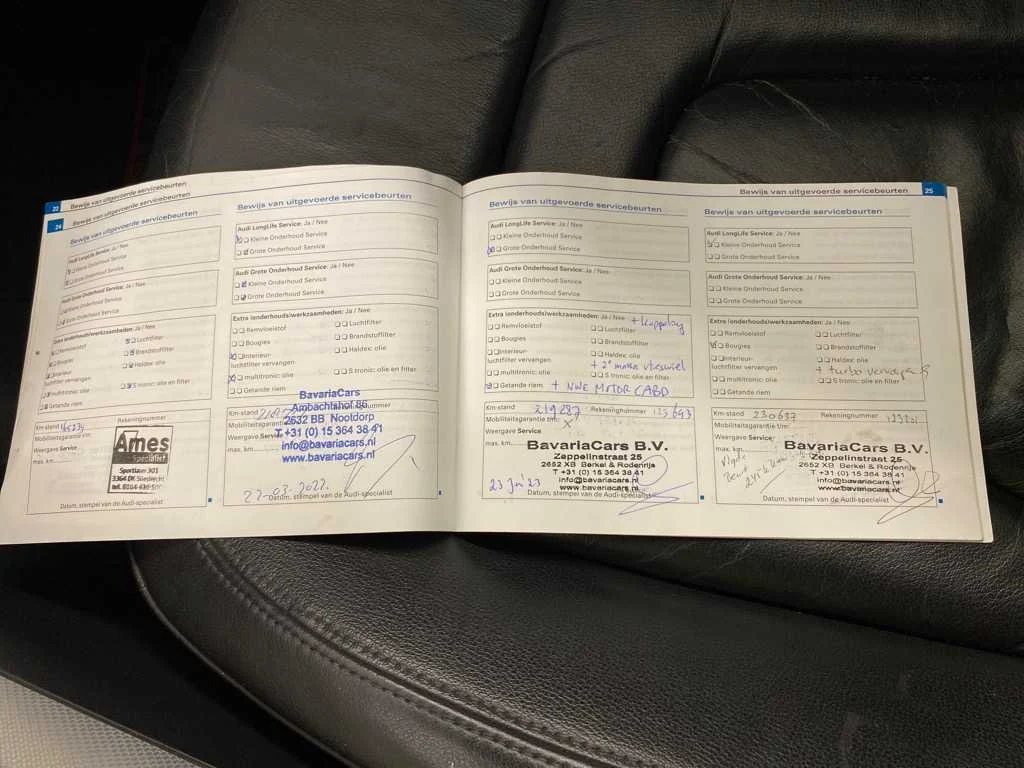 22
Bewijs van uitgevoerde servicebeurten
24
Bewijs van uitgevoerde servicebeurten
Bewijs van uitgevoerde servicebeurten
Audi LongLife Service: Ja / Nee
Kleine Onderhoud Service
Grote Onderhoud Service
Audi Grote Onderhoud Service: Ja / Nee
Kleine Onderhoud Service
Grote Onderhoud Service
Extra (onderhouds)werkzaamheden: Ja / Nee
Remvloeistof
Luchtfilter
Bougies
Brandstoffilter
Interieur-
luchtfilter vervangen
Haldex: olie
multitronic: olie
S tronic: olie en filter
Getande riem
Km-stand
Rekeningnummer
Mobiliteitsgarantie t/m:
Weergave Service
max. km
Ames
Specialist
Sportlaan 301
3364 DK Sliedrecht
Datum, stempel van de Audi-specialist
Bewijs van uitgevoerde servicebeurten
Audi LongLife Service: Ja / Nee
Kleine Onderhoud Service
Grote Onderhoud Service
Audi Grote Onderhoud Service: Ja / Nee
Kleine Onderhoud Service
Grote Onderhoud Service
Extra (onderhouds)werkzaamheden: Ja / Nee
Remvloeistof
Luchtfilter
Bougies
Brandstoffilter
Interieur-
luchtfilter vervangen
Haldex: olie
multitronic: olie
S tronic: olie en filter
Getande riem
Km-stand
Mobiliteitsgarantie t/m:
Weergave Service
max. km
BavariaCars
Ambachtshof 86
2632 BB Nootdorp
T +31 (0) 15 364 38 41
info@bavariacars.nl
www.bavariacars.nl
22-03-2022
Datum, stempel van de Audi-specialist
Bewijs van uitgevoerde servicebeurten
Audi LongLife Service: Ja / Nee
Kleine Onderhoud Service
Grote Onderhoud Service
Audi Grote Onderhoud Service: Ja / Nee
Kleine Onderhoud Service
Grote Onderhoud Service
Extra (onderhouds)werkzaamheden: Ja / Nee + koppeling
Remvloeistof
Luchtfilter
Bougies
Brandstoffilter
Interieur-
luchtfilter vervangen
Haldex: olie
+ 2e massa vliegwiel
multitronic: olie
S tronic: olie en filter
Getande riem + NWE MOTOR CABD
Km-stand 219287 Rekeningnummer 123693
Mobiliteitsgarantie t/m: X
Weergave Service
max. km
BavariaCars B.V.
Zeppelinstraat 25
2652 XB Berkel & Rodenrijs
T +31 (0) 15 364 38 41
info@bavariacars.nl
www.bavariacars.nl
23 Jan 23
Datum, stempel van de Audi-specialist
Bewijs van uitgevoerde servicebeurten
25
Bewijs van uitgevoerde servicebeurten
Audi LongLife Service: Ja / Nee
Kleine Onderhoud Service
Grote Onderhoud Service
Audi Grote Onderhoud Service: Ja / Nee
Kleine Onderhoud Service
Grote Onderhoud Service
Extra (onderhouds)werkzaamheden: Ja / Nee
Remvloeistof
Luchtfilter
Bougies
Brandstoffilter
Interieur-
luchtfilter vervangen
Haldex: olie
+ turbo vervangen
multitronic: olie
S tronic: olie en filter
Getande riem
Km-stand 230637 Rekeningnummer
Mobiliteitsgarantie t/m:
Weergave Service
max. km
BavariaCars B.V.
Zeppelinstraat 25
2652 XB Berkel & Rodenrijs
T +31 (0) 15 364 38 41
info@bavariacars.nl
www.bavariacars.nl
Datum, stempel van de Audi-specialist